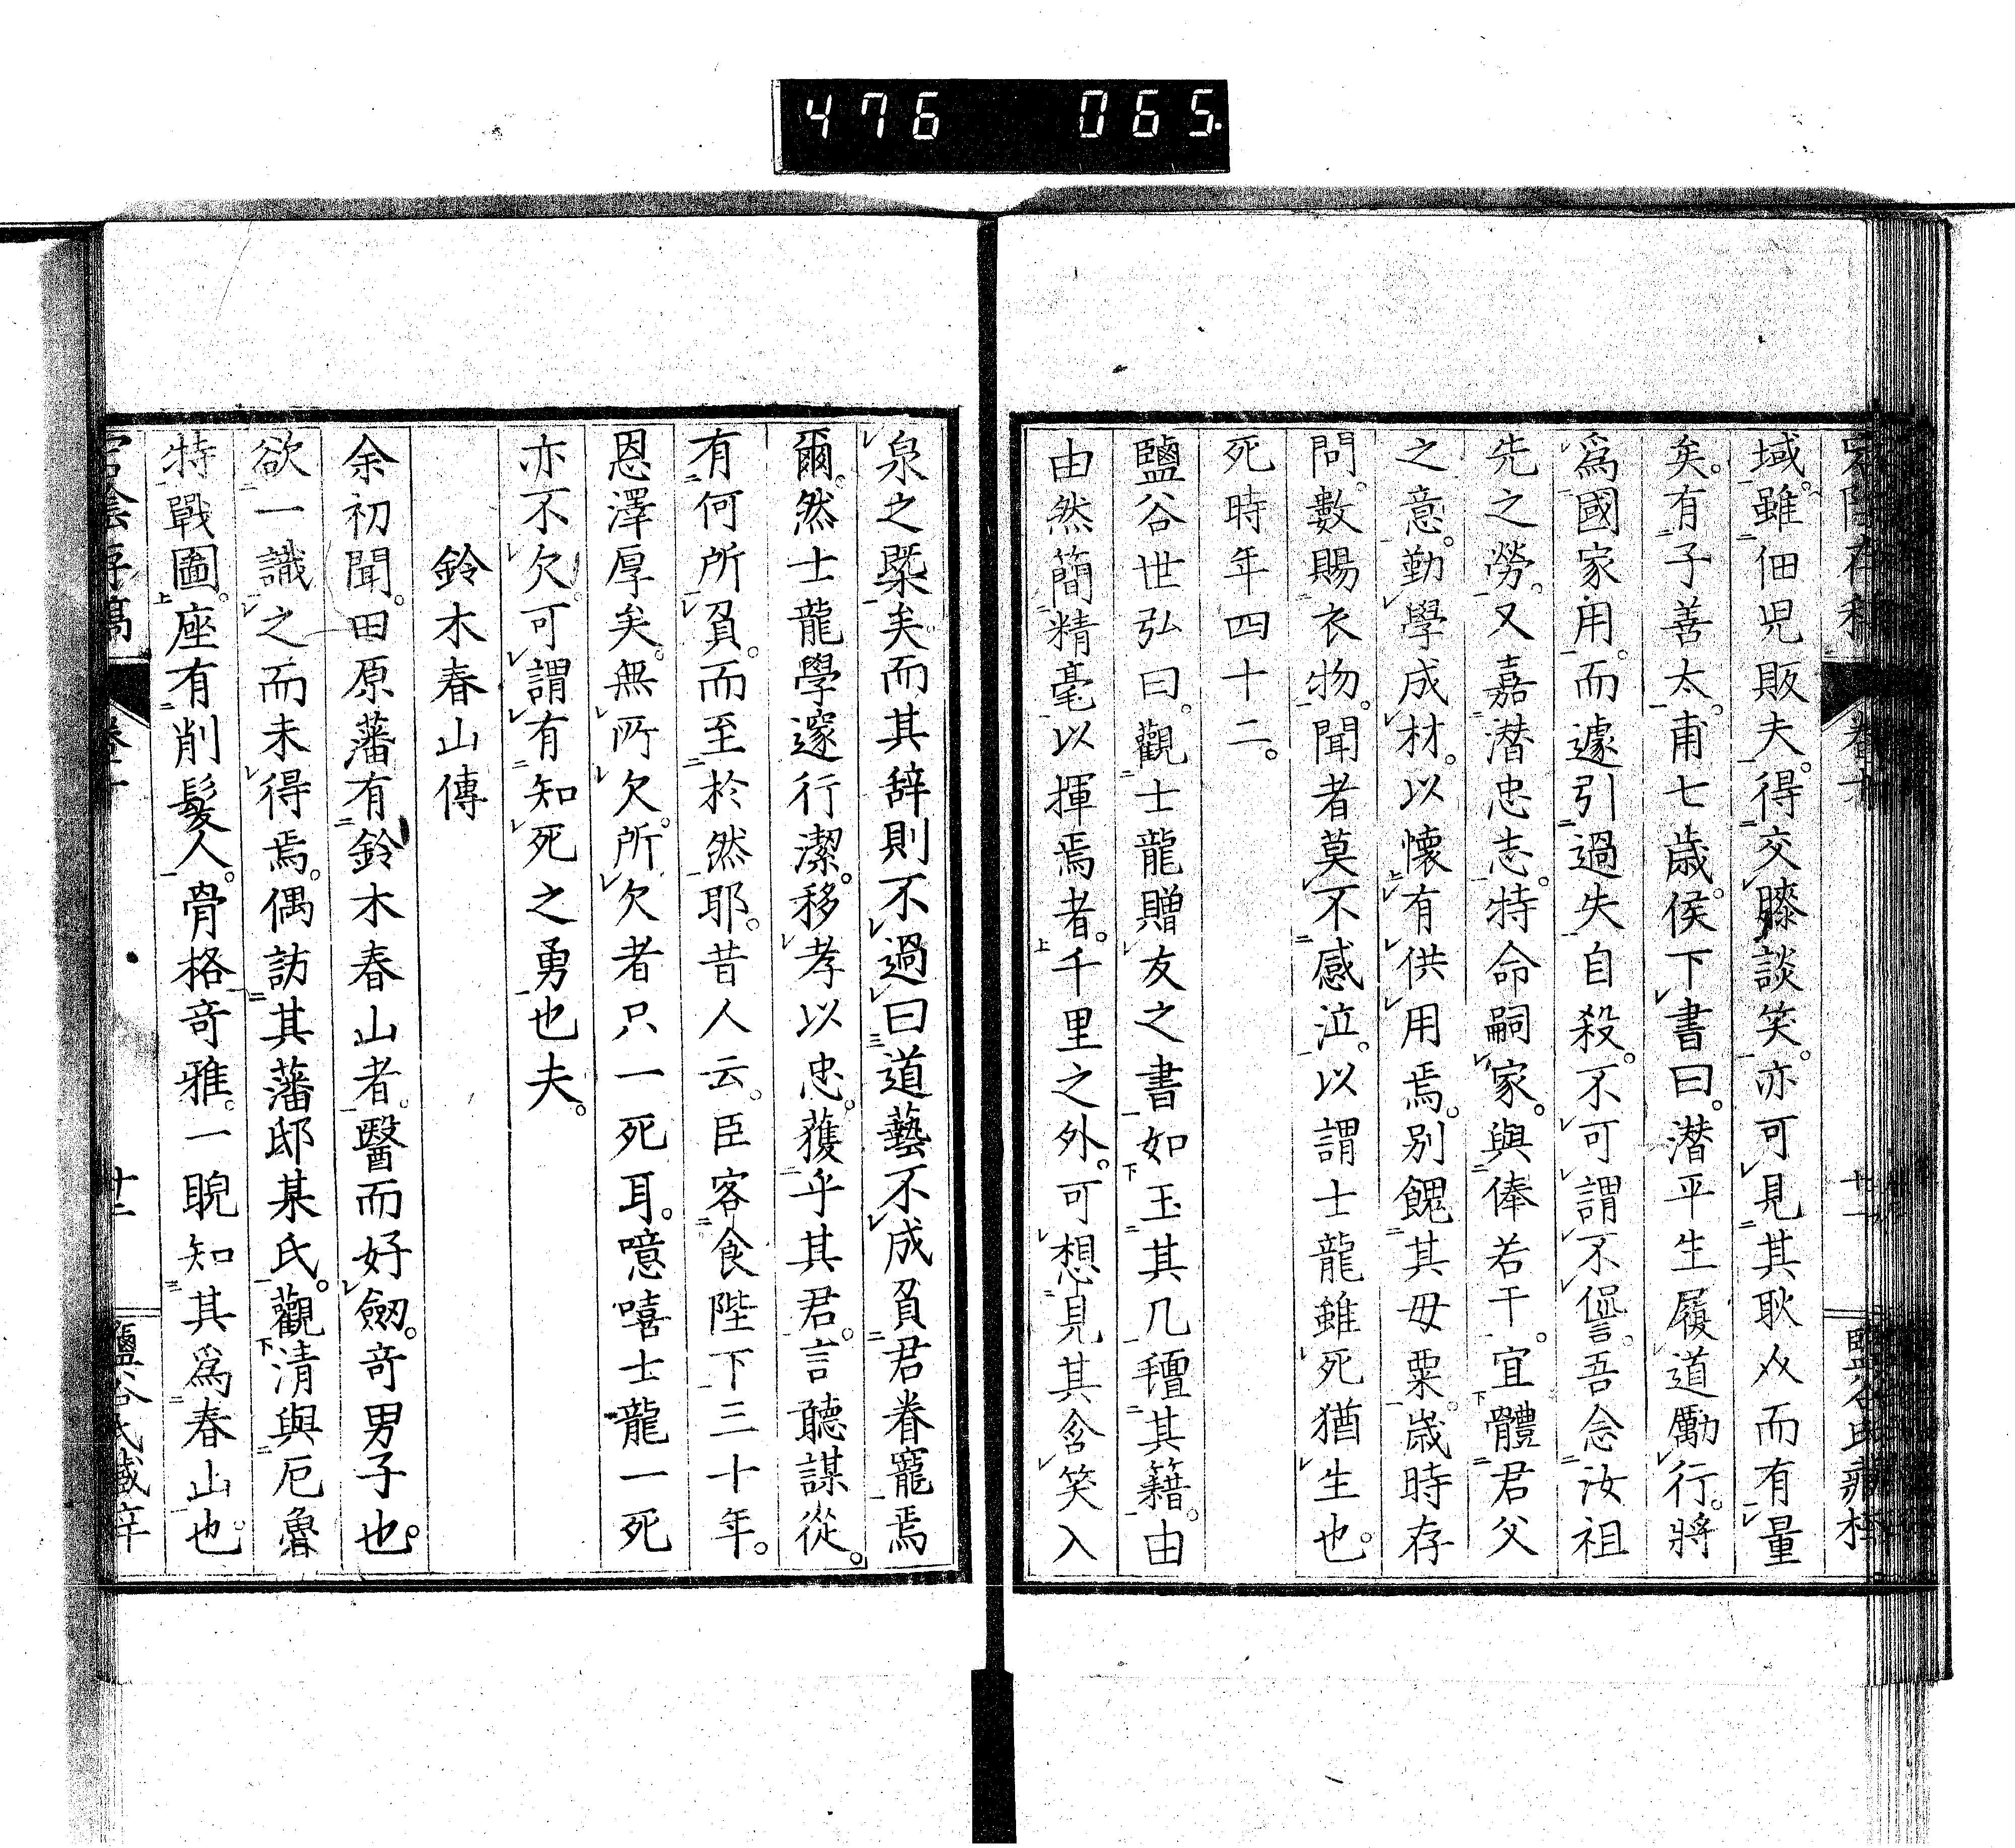 476 065.
域。雖佃児販夫。得交膝談笑。亦可見其耿介而有量
矣。有子善太。甫七歳。侯下書曰。潜平生履道勵行。將
爲國家用。而遽引過失自殺。不可謂不
。吾念汝祖
先之勞。又嘉潜忠志。特命嗣家。與俸若干。宜體君父
之意。勤學成材。以懐有供用焉。別餽其母粟。歳時存
問。數賜衣物。聞者莫不感泣。以謂士龍雖死猶生也。
死時年四十二。
鹽谷世弘曰。觀士龍贈友之書。如玉其几
其籍。由
由然簡精毫以揮焉者。千里之外。可想見其含笑入
泉之槩矣。而其辞則不過曰道藝不成負君眷寵焉
爾。然士龍學邃行潔。移孝以忠。獲乎其君。言聽謀從。
有何所負。而至於然耶。昔人云。臣客食陛下三十年。
恩澤厚矣。無所欠。所欠者只一死耳。噫嘻士龍一死
亦不欠。可謂有知死之勇也夫。
鈴木春山傳
余初聞。田原藩有鈴木春山者。醫而好劒。奇男子也。
欲一識之而未得焉。偶訪其藩邸某氏。觀清與厄魯
特戰圖。座有削髮人。骨格奇雅。一睨知其爲春山也。
宕陰存稿
卷十
十二
鹽谷氏藏梓